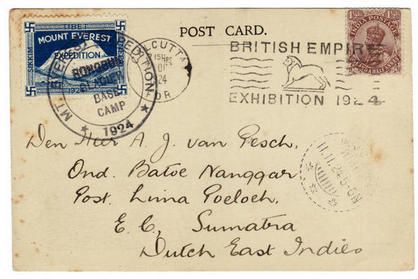 POST CARD.
TIBET
SIKKIM
MOUNT EVEREST
EXPEDITION
1924
MT. EVEREST EXPEDITION
RONGBUK
GLACIER
BASE
CAMP
1924
CALCUTTA
24
BRITISH EMPIRE
EXHIBITION 1924
INDIA POSTAGE
Den Heer A. J. van Gesch,
Ond. Batoe Nanggar
Post Lima Poeloeh.
E. C. Sumatra
Dutch East Indies